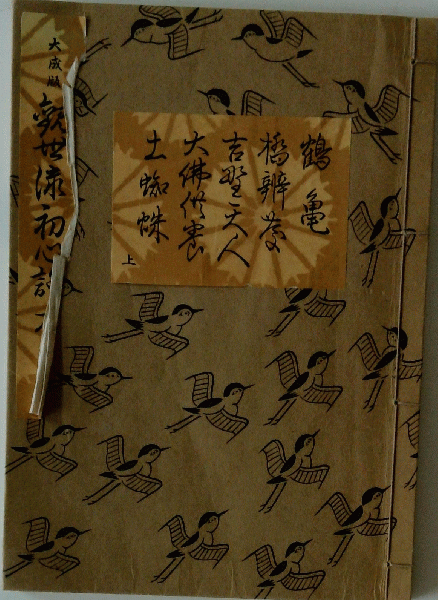 鶴亀
橋辨慶
吉野天人
大佛供養
土蜘蛛
上
大成版
觀世流初心謠